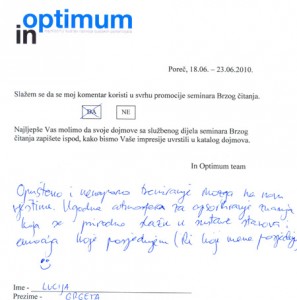 in optimum
Poreč, 18.06. – 23.06.2010.
Slažem se da se moj komentar koristi u svrhu promocije seminara Brzog čitanja.
DA NE
Najljepše Vas molimo da svoje dojmove sa službenog dijela seminara Brzog
čitanja zapišete ispod, kako bismo Vaše impresije uvrstili u katalog dojmova.
In Optimum team
Opušteno i nenaporno treniranje mozga na nove
vještine. Ugodna atmosfera za apsorbiranje znanja
koja se prirodno slažu u sustave stavova i
emocija koje posjedujem (ili koji mene posjeduju)
Ime - LUCIJA
Prezime - ORGETA